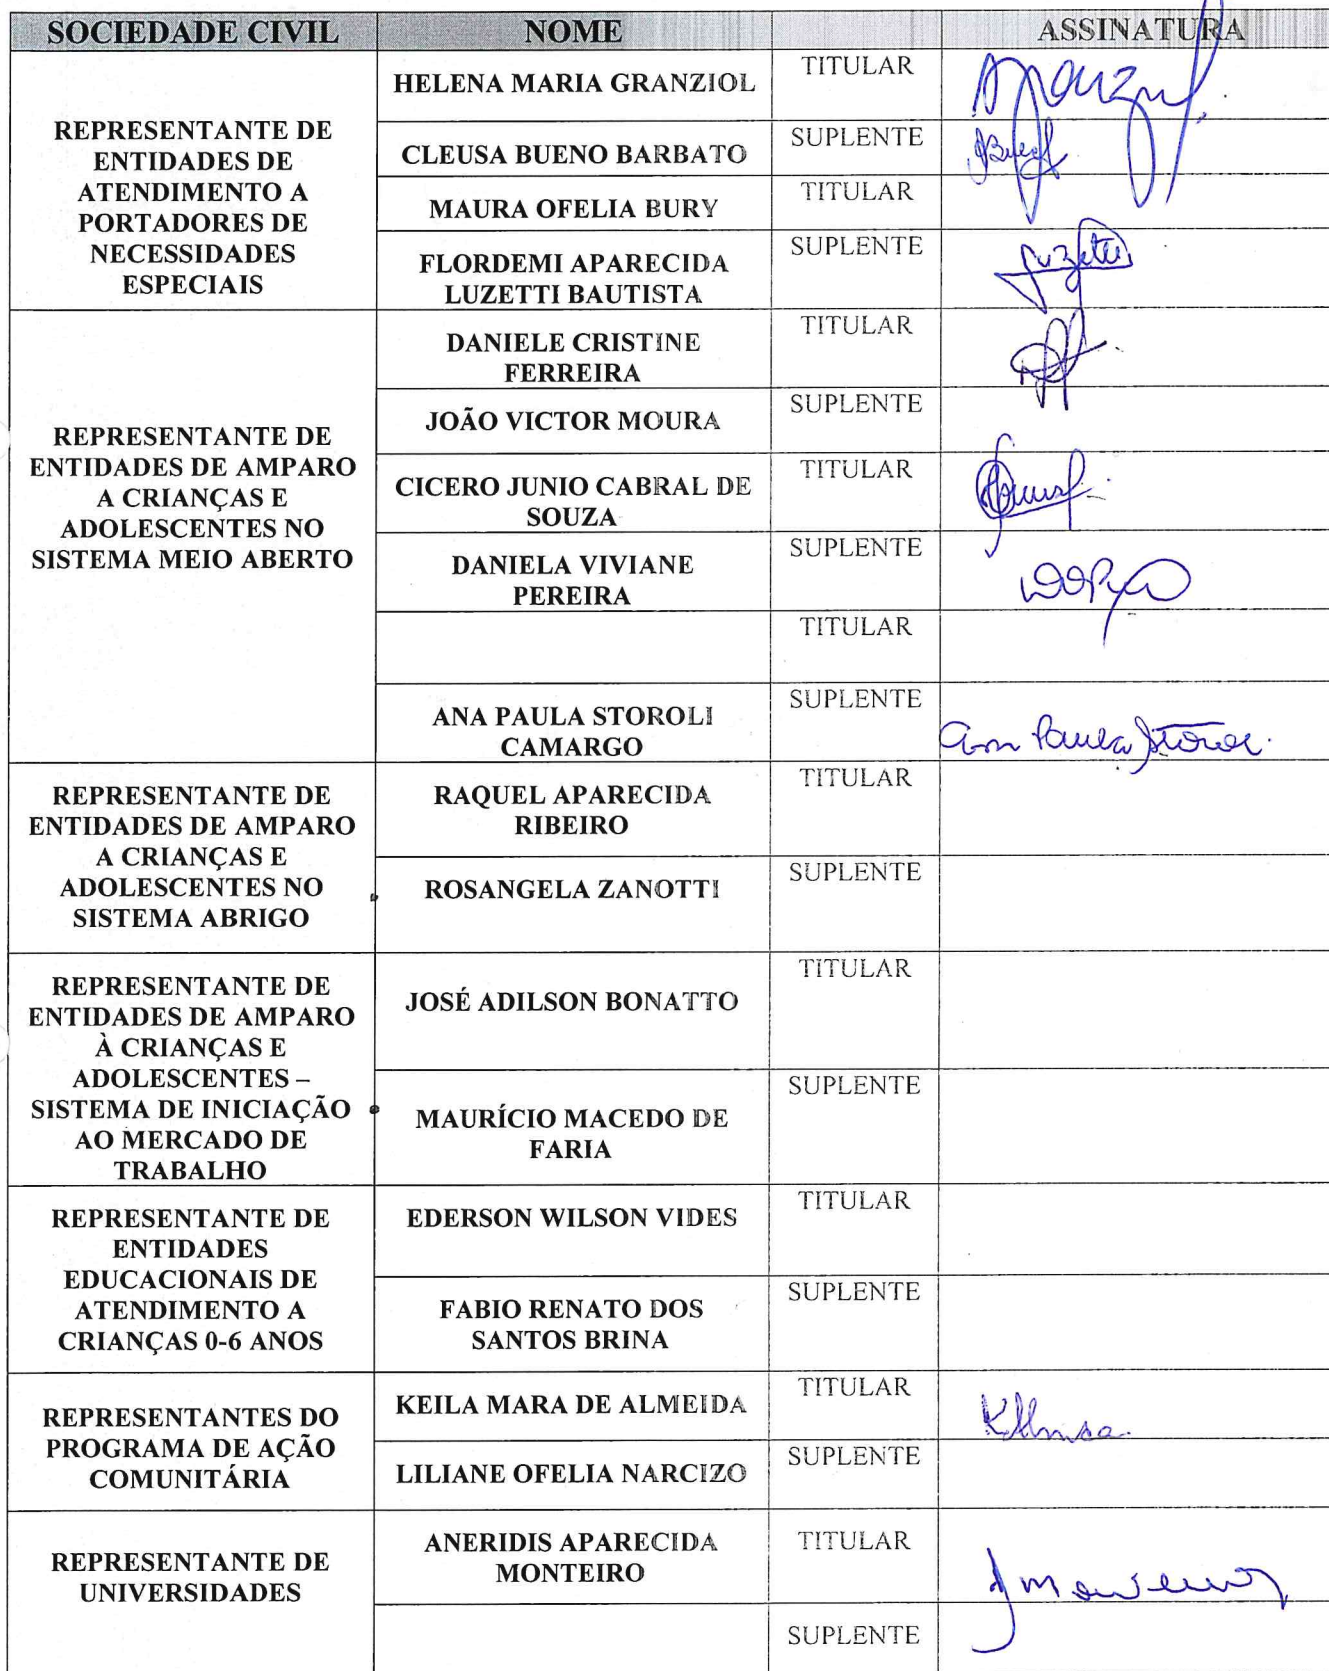 SOCIEDADE CIVIL NOME ASSINATURA
REPRESENTANTE DE
ENTIDADES DE
ATENDIMENTO A
PORTADORES DE
NECESSIDADES
ESPECIAIS
HELENA MARIA GRANZIOL TITULAR
CLEUSA BUENO BARBATO SUPLENTE
MAURA OFELIA BURY TITULAR
FLORDEMI APARECIDA SUPLENTE
LUZETTI BAUTISTA
Luzetti
REPRESENTANTE DE
ENTIDADES DE AMPARO
A CRIANÇAS E
ADOLESCENTES NO
SISTEMA MEIO ABERTO
DANIELE CRISTINE TITULAR
FERREIRA
JOÃO VICTOR MOURA SUPLENTE
CICERO JUNIO CABRAL DE TITULAR
SOUZA
DANIELA VIVIANE SUPLENTE
PEREIRA
TITULAR
ANA PAULA STOROLI SUPLENTE
CAMARGO
Ana Paula Storoli
REPRESENTANTE DE
ENTIDADES DE AMPARO
A CRIANÇAS E
ADOLESCENTES NO
SISTEMA ABRIGO
RAQUEL APARECIDA TITULAR
RIBEIRO
ROSANGELA ZANOTTI SUPLENTE
REPRESENTANTE DE
ENTIDADES DE AMPARO
À CRIANÇAS E
ADOLESCENTES –
SISTEMA DE INICIAÇÃO
AO MERCADO DE
TRABALHO
JOSÉ ADILSON BONATTO TITULAR
MAURÍCIO MACEDO DE SUPLENTE
FARIA
REPRESENTANTE DE
ENTIDADES
EDUCACIONAIS DE
ATENDIMENTO A
CRIANÇAS 0-6 ANOS
EDERSON WILSON VIDES TITULAR
FABIO RENATO DOS SUPLENTE
SANTOS BRINA
REPRESENTANTES DO
PROGRAMA DE AÇÃO
COMUNITÁRIA
KEILA MARA DE ALMEIDA TITULAR
LILIANE OFELIA NARCIZO SUPLENTE
REPRESENTANTE DE
UNIVERSIDADES
ANERIDIS APARECIDA TITULAR
MONTEIRO
SUPLENTE